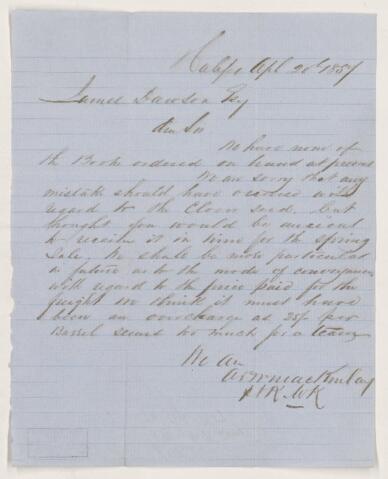 Halifx Apl 20th 1857
James Dawson Esq
Dear Sir
We have none of
the Books ordered on hand at present
We are sorry that any
mistake should have occurred with
regard to the Clover seed. but
thought you would be anxious
to receive it in time for the Spring
Sale. We shall be more particular
in future as to the mode of conveyance
with regard to the price paid for the
freight we think it must have
been an overcharge as 25/ per
Barrel seems too much for a team
We are
A & W MacKinlay